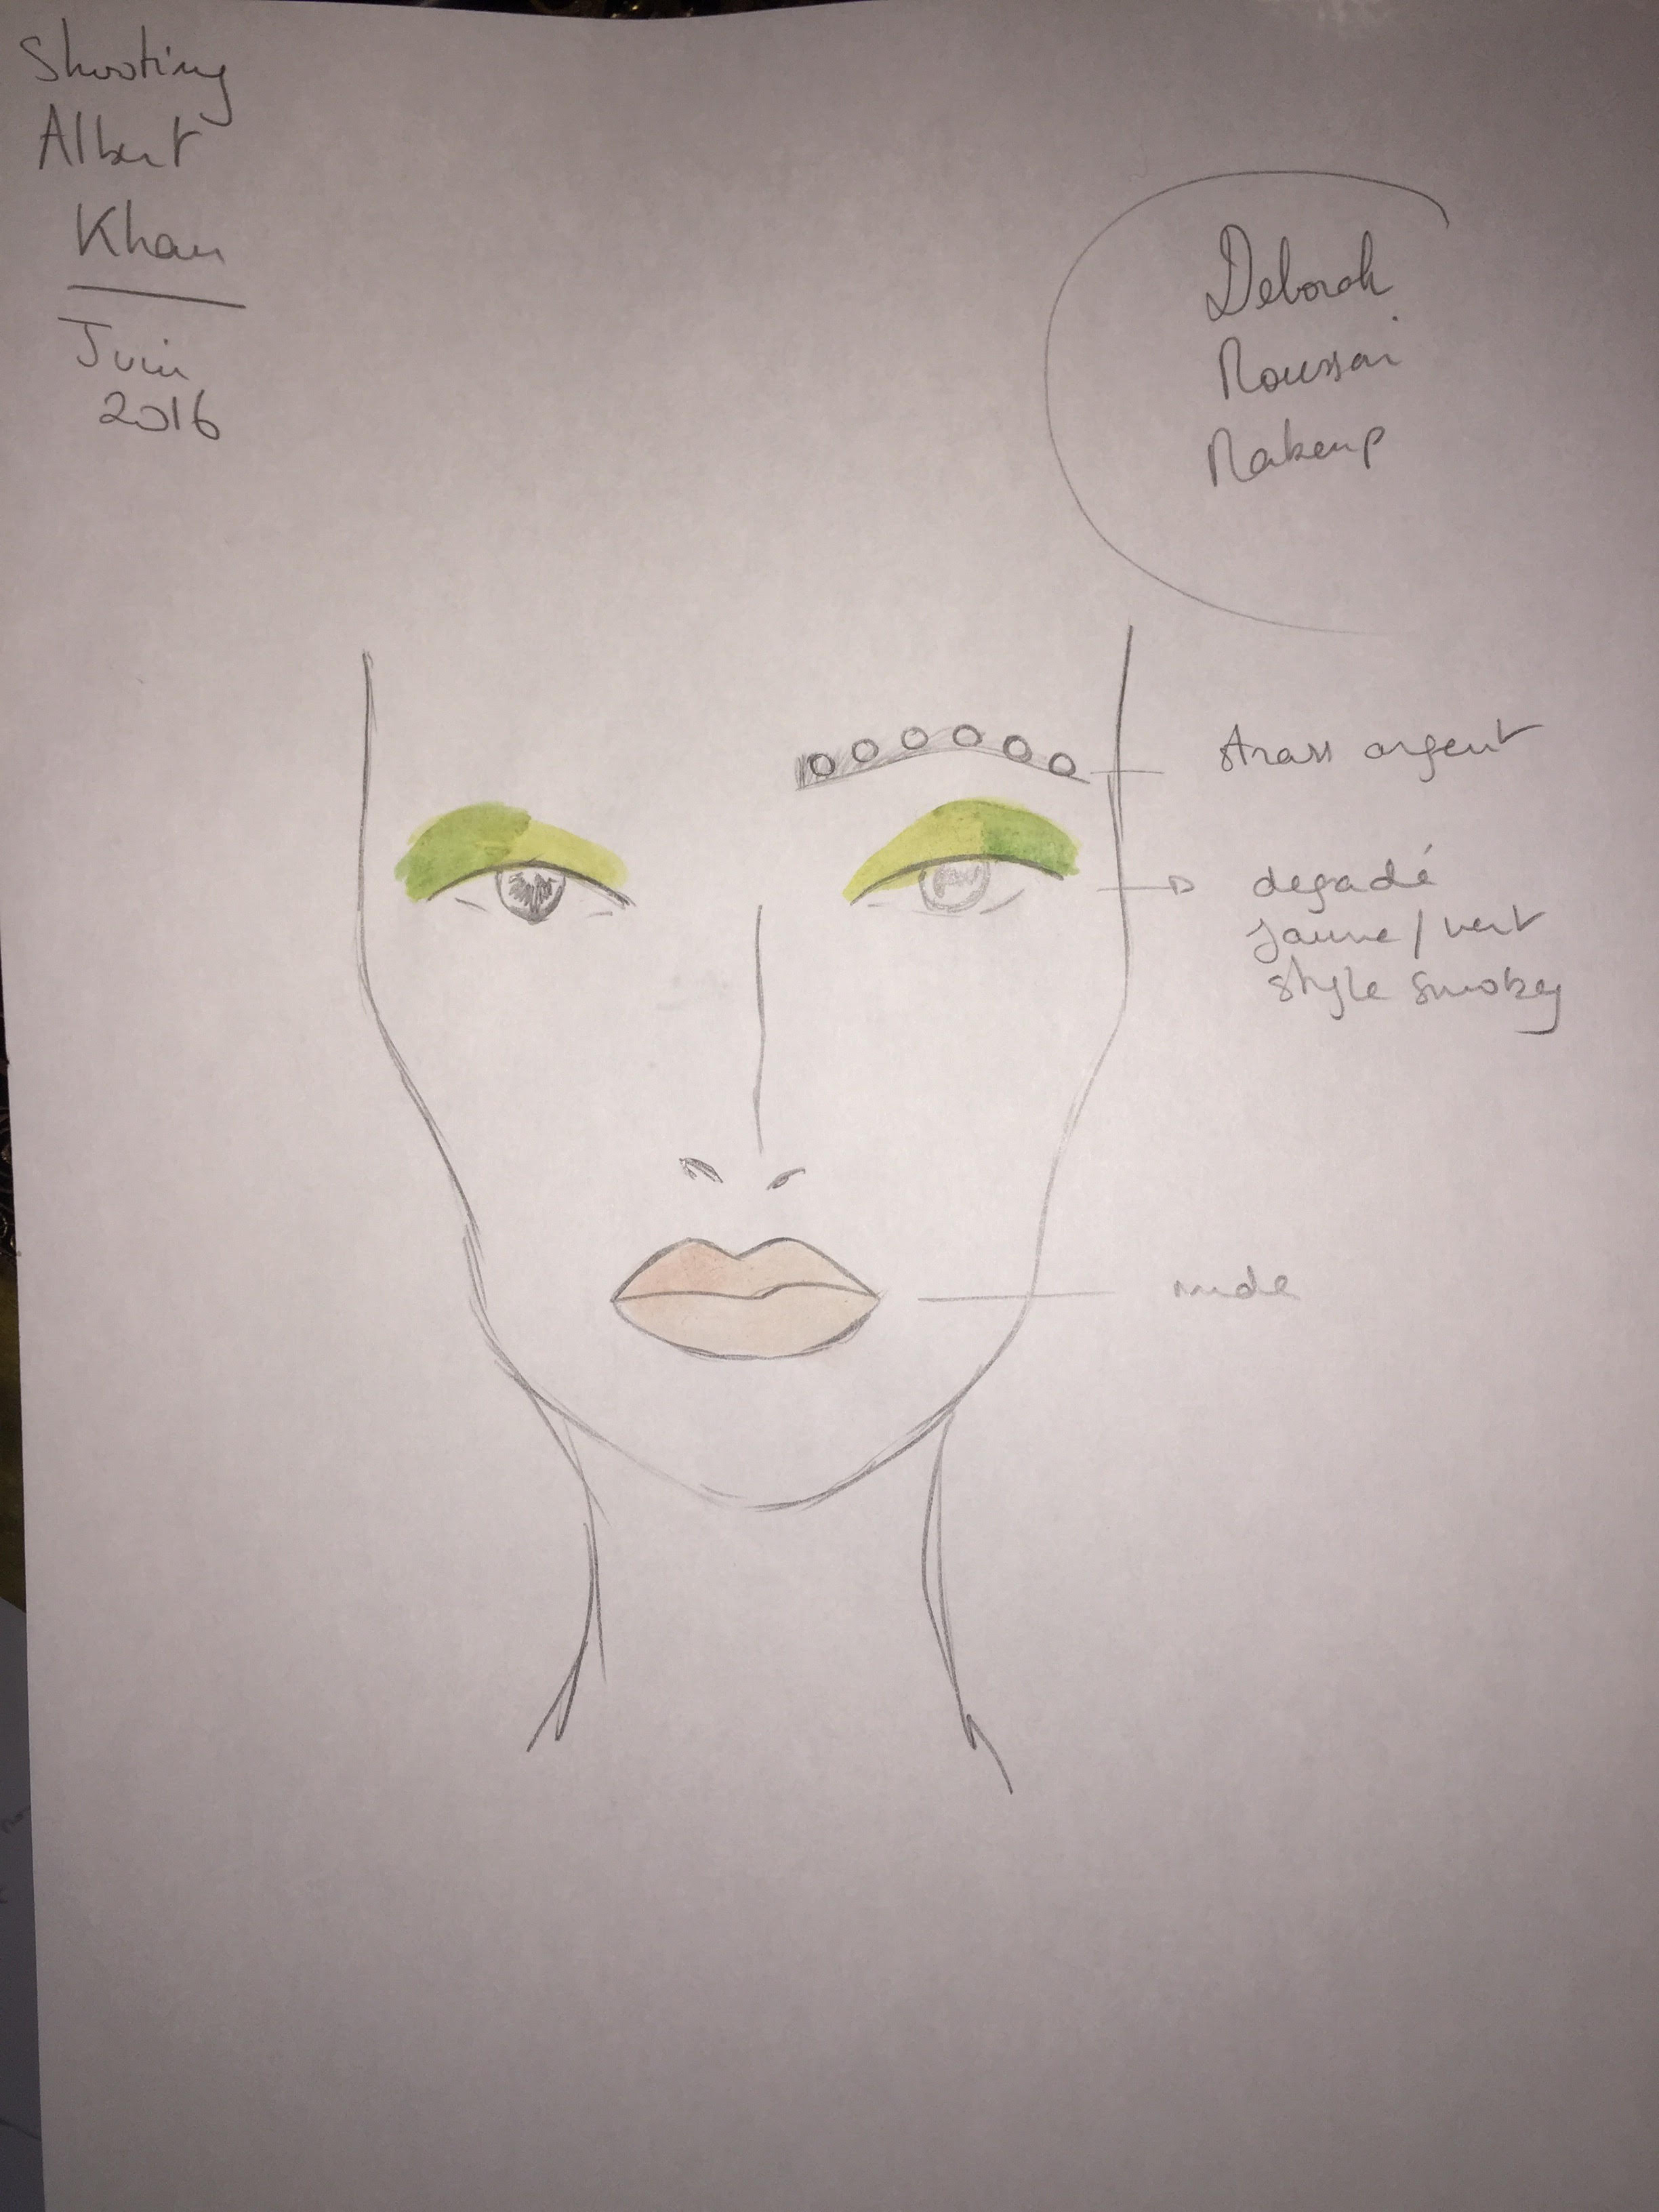 Shooting
Albert
Khan
Juin
2016
Deborah
Moussai
Makeup
strass argent
degadé
jaune / vert
style smokey
nude